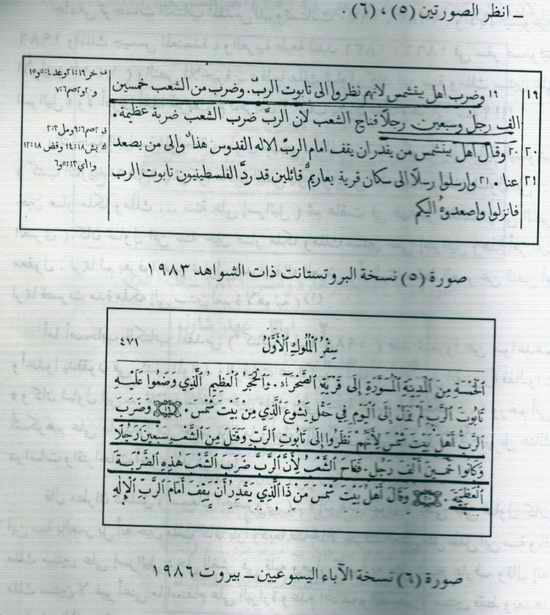 ــ انظر الصورتين (٥) ، (٦) .
١٩ ١٩ وضرب اهل بيتشمس لانهم نظروا الى تابوت الربّ. وضرب من الشعب خمسين
الف رجل وسبعين رجلًا فناح الشعب لان الربّ ضرب الشعب ضربة عظيمة.
٢٠ ٢٠ وقال اهل بيتشمس من يقدر ان يقف امام الربّ الاله القدوس هذا والى من يصعد
٢١ عنا. ٢١ وارسلوا رسلًا الى سكان قرية يعاريم قائلين قد ردّ الفلسطينيون تابوت الرب
فانزلوا واصعدوهُ اليكم
صورة (٥) نسخة البروتستانت ذات الشواهد ١٩٨٣
سِفْرُ الْمُلُوكِ الْأَوَّلُ ٤٧١
الْخَمْسَةِ مِنَ الْمَدِينَةِ الْمُسَوَّرَةِ إِلَى قَرْيَةِ الصَّحْرَاءِ. وَالْحَجَرُ الْعَظِيمُ الَّذِي وَضَعُوا عَلَيْهِ
تَابُوتَ الرَّبِّ لَمْ يَزَلْ إِلَى الْيَوْمِ فِي حَقْلِ يَشُوعَ الَّذِي مِنْ بَيْتَ شَمْسَ. وَضَرَبَ
الرَّبُّ أَهْلَ بَيْتَ شَمْسَ لِأَنَّهُمْ نَظَرُوا إِلَى تَابُوتِ الرَّبِّ وَقَتَلَ مِنَ الشَّعْبِ سَبْعِينَ رَجُلًا
وَكَانُوا خَمْسِينَ أَلْفَ رَجُلٍ. فَنَاحَ الشَّعْبُ لِأَنَّ الرَّبَّ ضَرَبَ الشَّعْبَ هٰذِهِ الضَّرْبَةَ
الْعَظِيمَةَ. وَقَالَ أَهْلُ بَيْتَ شَمْسَ مَنْ ذَا الَّذِي يَقْدِرُ أَنْ يَقِفَ أَمَامَ الرَّبِّ الْإِلٰهِ
صورة (٦) نسخة الآباء اليسوعيين ــ بيروت ١٩٨٦